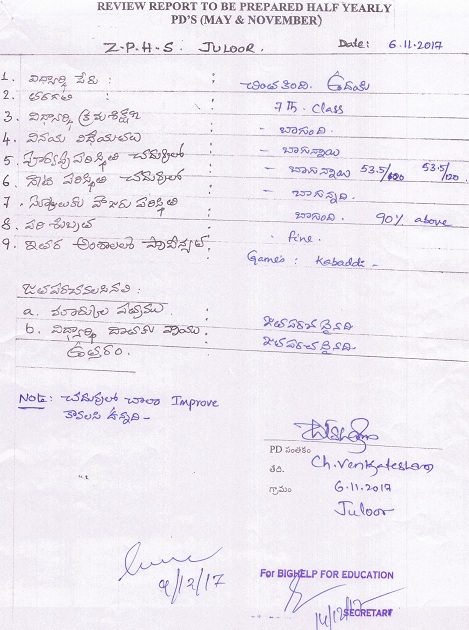 REVIEW REPORT TO BE PREPARED HALF YEARLY
PD'S (MAY & NOVEMBER)
Z-P-H-S. JULOOR. Date: 6.11.2017
1. విద్యార్థి పేరు : చింతకింది. ఉదయ్
2. తరగతి : 7 Th. Class
3. విద్యార్థి క్రమశిక్షణ : - బాగుంది.
4. వినయ విధేయతలు : - బాగున్నాయి
5. పూర్వపు పరిస్థితి చదువులో : - బాగున్నాయి 53.5/120 53.5/120
6. నేటి పరిస్థితి చదువులో : - బాగున్నది.
7. స్కూలుకు హాజరు పరిస్థితి : బాగుంది. 90% above
8. పరిశుభ్రత : - fine.
9. ఇతర అంశాలలో : Games: Kabaddi -
జతపరచవలసినవి :
a. మార్కుల పత్రము : జతపరచనైనది
b. విద్యార్థి దాతకు వ్రాయు : జతపరచనైనది.
ఉత్తరం.
Note: చదువులో చాలా Improve
కావలసి ఉన్నది -
PD సంతకం
Ch. Venkatesham
తేది. 6.11.2017
గ్రామం Juloor
9/12/17
For BIGHELP FOR EDUCATION
14/12/17
SECRETARY